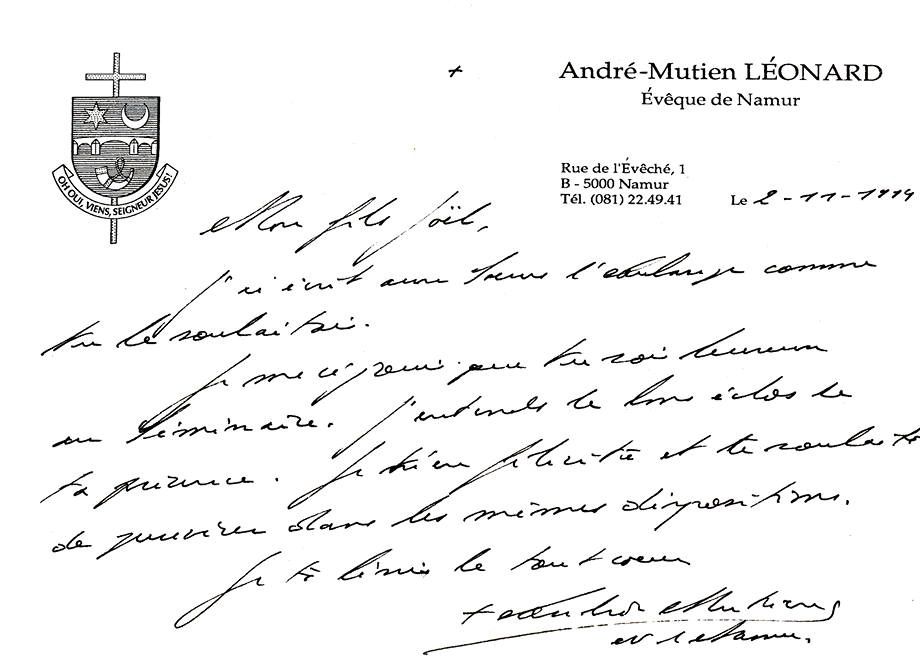 +
André-Mutien LÉONARD
Évêque de Namur
Rue de l'Évêché, 1
B - 5000 Namur
Tél. (081) 22.49.41
Le 2-11-1994
OH OUI, VIENS, SEIGNEUR JESUS!
Mon fils Joël,
J'ai écrit aux comme
tu le souhaitais.
Je me réjouis que tu sois heureux
au Séminaire. J'entends de bons échos de
ta présence. Je t'en félicite et te souhaite
de dans les mêmes dispositions.
Je te bénis de tout coeur
+ André Mutien
ev. de Namur.